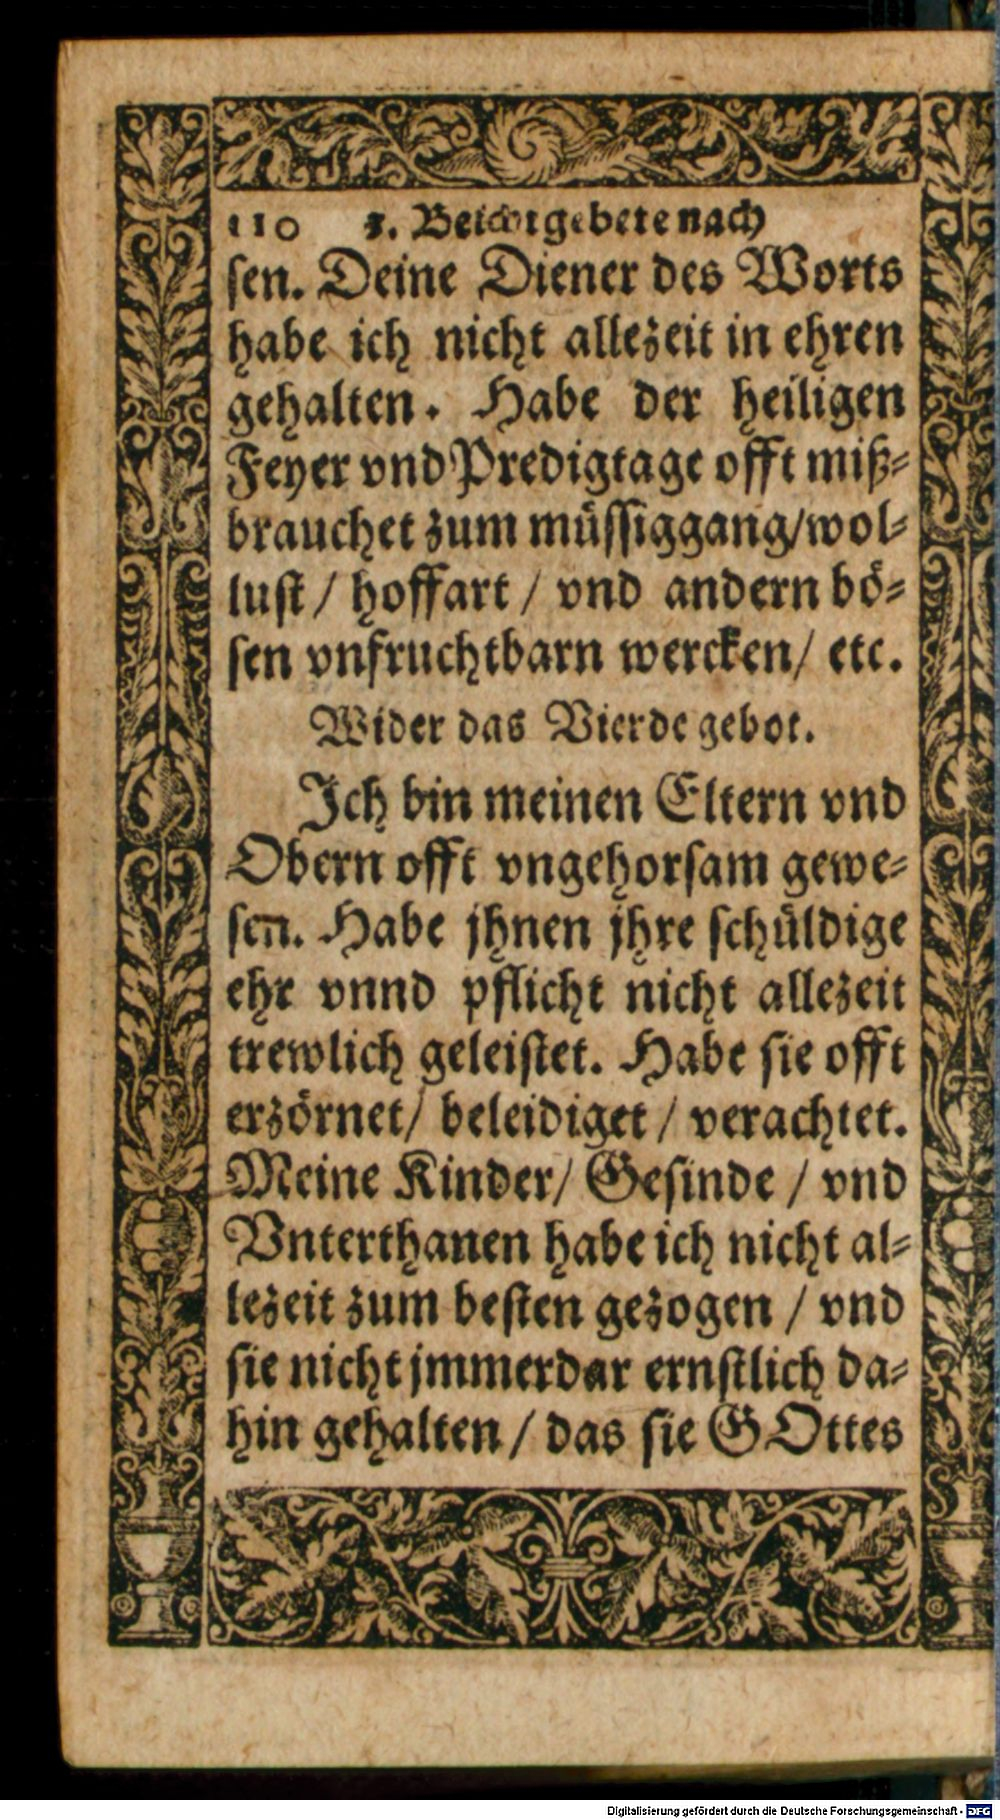 110 1. Beichtgebete nach
sen. Deine Diener des Worts
habe ich nicht allezeit in ehren
gehalten. Habe der heiligen
Feyer vnd Predigtage offt miß-
brauchet zum müssiggang/wol-
lust / hoffart / vnd andern bö-
sen vnfruchtbarn wercken/ etc.
Wider das Vierde gebot.
Ich bin meinen Eltern vnd
Obern offt vngehorsam gewe-
sen̄. Habe jhnen jhre schüldige
ehr vnnd pflicht nicht allezeit
trewlich geleistet. Habe sie offt
erzörnet/ beleidiget / verachtet.
Meine Kinder/ Gesinde / vnd
Vnterthanen habe ich nicht al-
lezeit zum besten gezogen / vnd
sie nicht jmmerdar ernstlich da-
hin gehalten / das sie GOttes
Digitalisierung gefördert durch die Deutsche Forschungsgemeinschaft - DFG